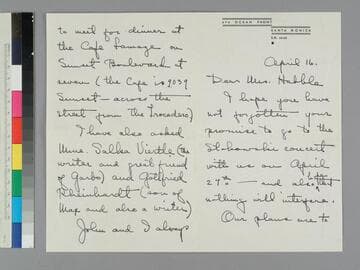 SANTA MONICA
April 16.
Dear Mrs. Hubble
I hope you have
not forgotten your
promise to go to the
Stokowski concert
with us on April
27th — and also
nothing will interfere.
Our plans are to
to meet for dinner at
the Cafe Lamaze on
Sunset Boulevard at
seven (the Cafe is 9039
Sunset — across the
street from the Trocadero)
I have also asked
Mme. Salka Viertle (the
writer and great friend
of Garbo) and Gottfried
Rheinhardt (son of
Max and also a writer)
John and I always